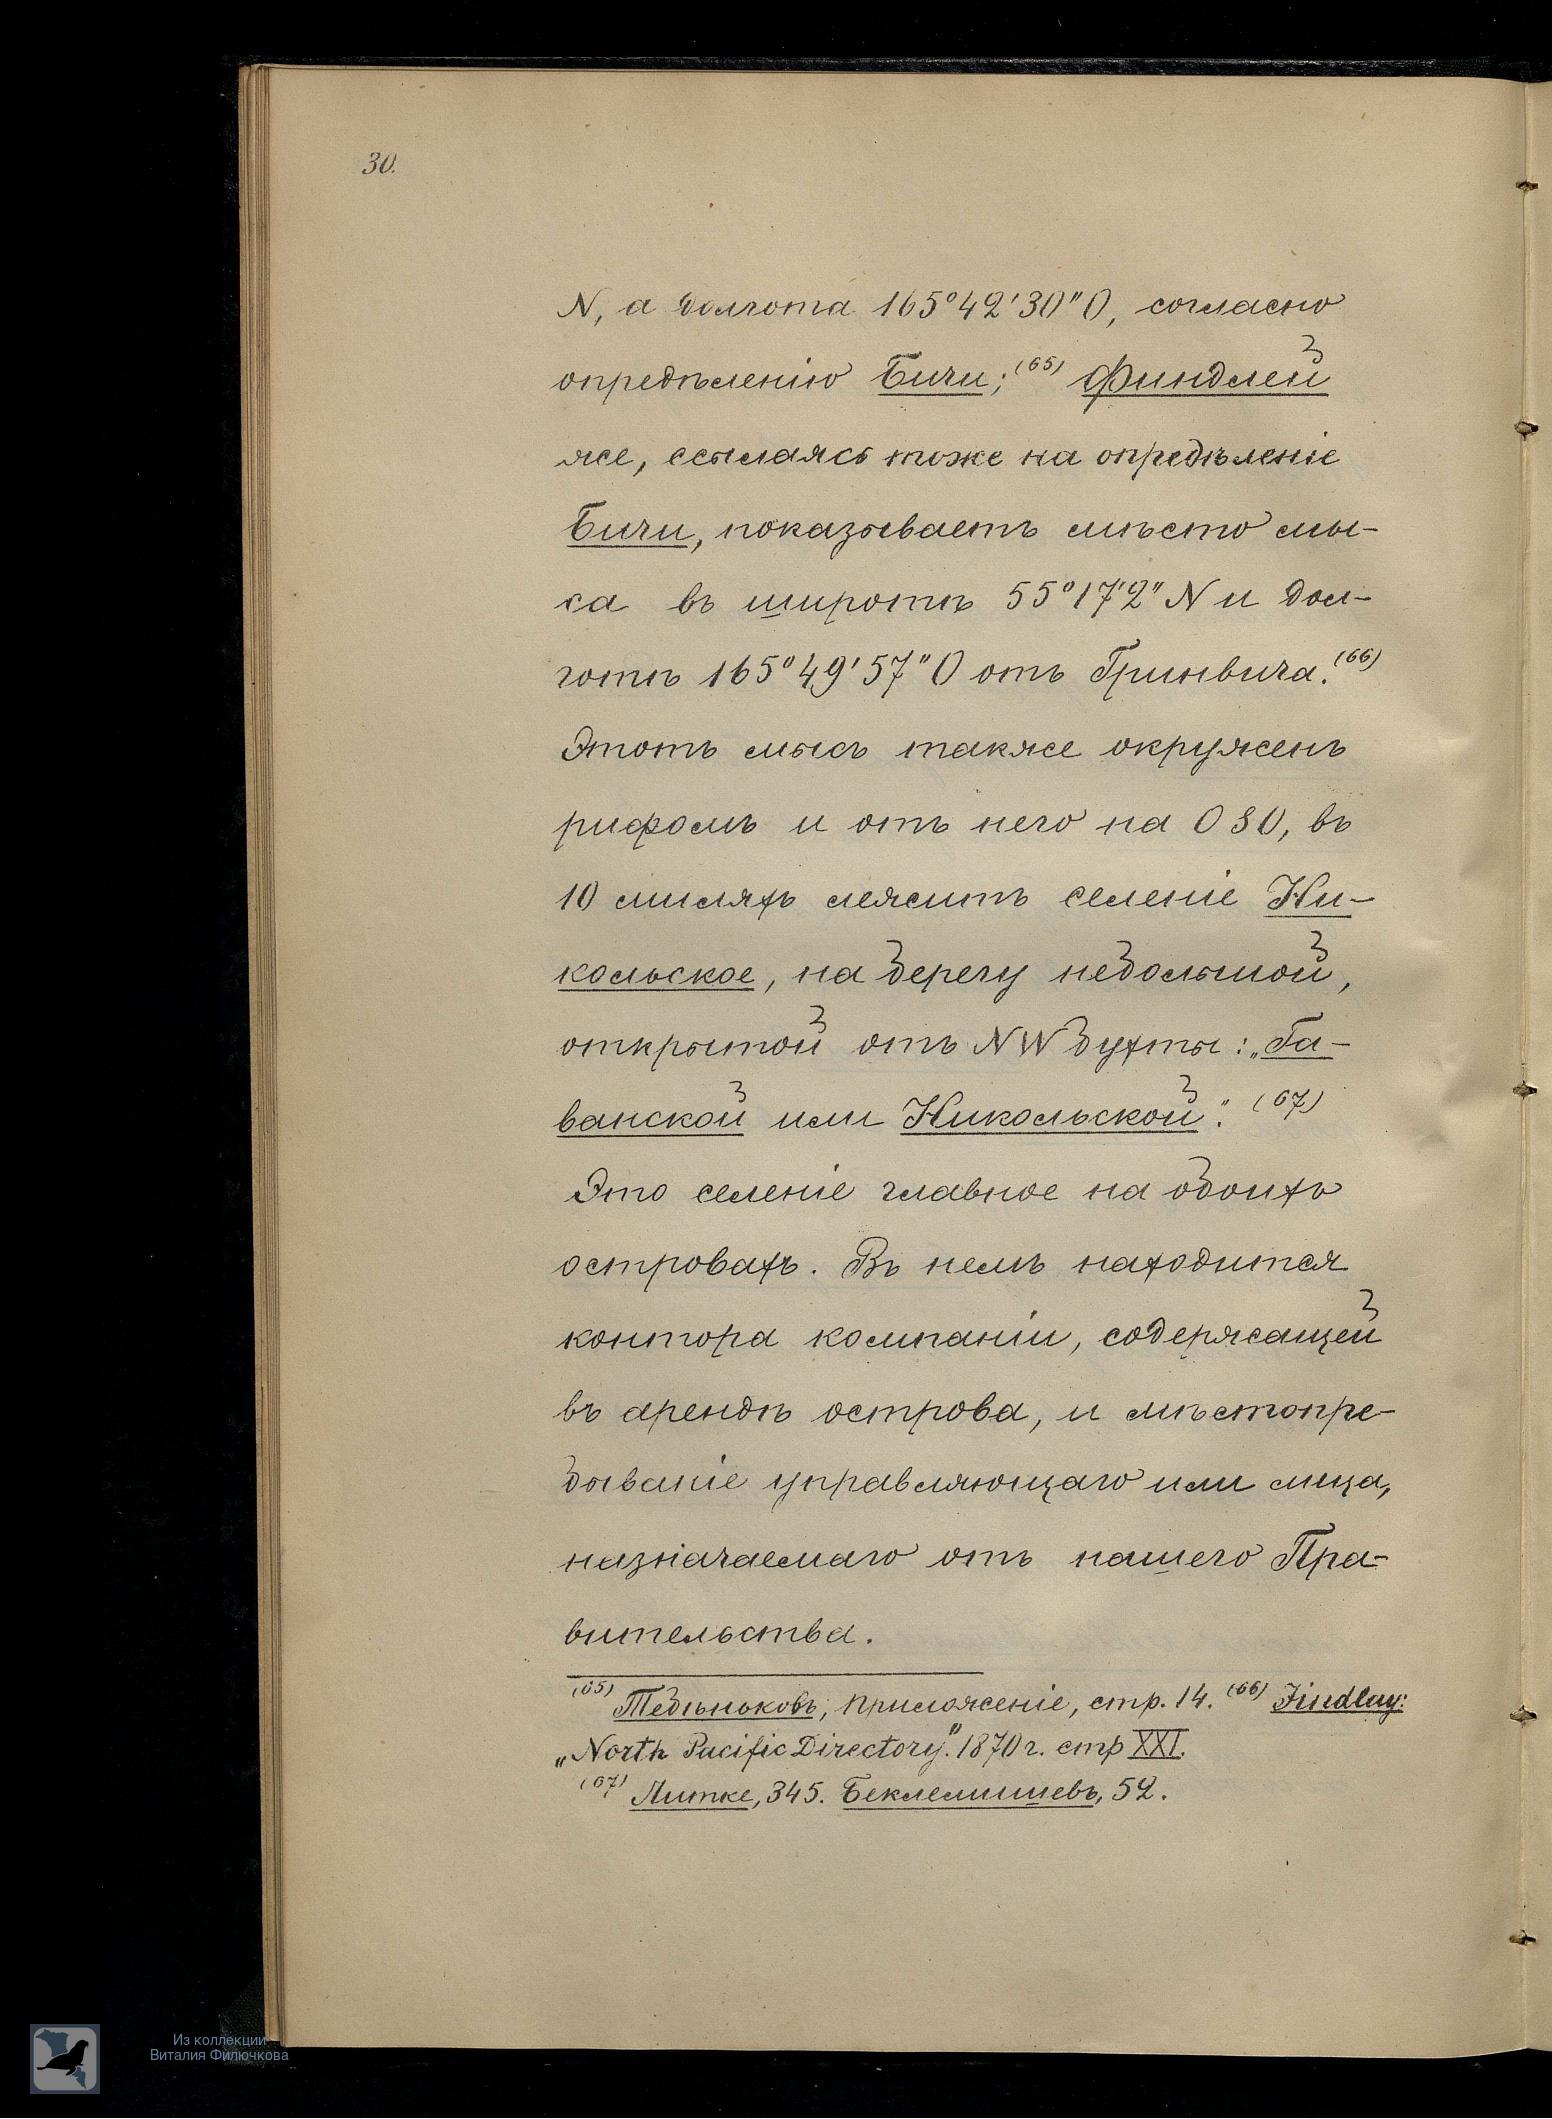 30.
N, а долгота 165°42'30"O, согласно
опредѣленію Бичи; (65) Финдлей
же, ссылаясь тоже на опредѣленіе
Бичи, показываетъ мѣсто мы-
са въ широтѣ 55°17'2" N и дол-
готѣ 165°49'57"O отъ Гринвича. (66)
Этотъ мысъ также окруженъ
рифомъ и отъ него на OSO, въ
10 миляхъ лежитъ селеніе Ни-
кольское, на берегу небольшой,
открытой отъ NW бухты: „Га-
ванской или Никольской". (67)
Это селеніе главное на обоихъ
островахъ. Въ немъ находится
контора компаніи, содержащей
въ арендѣ острова, и мѣстопре-
бываніе управляющаго или лица,
назначаемаго отъ нашего Пра-
вительства.
(65) Тебѣньковъ, Приложеніе, стр. 14. (66) Findlay:
„North Pacific Directory". 1870 г. стр XXI.
(67) Литке, 345. Беклемишевъ, 52.
Из коллекции
Виталия Филючкова